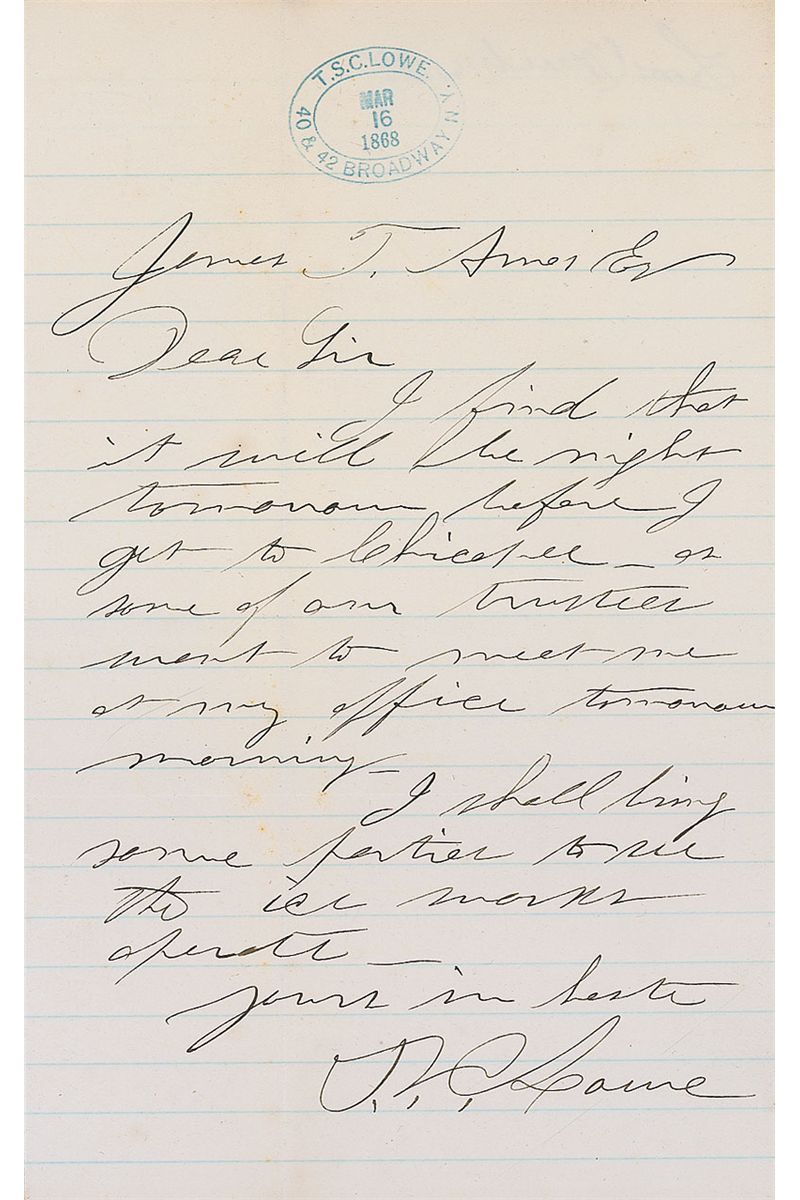 T.S.C. LOWE.
MAR
16
1868
40 & 42 BROADWAY N.Y.
James T. Ames Esq
Dear Sir
I find that
it will be night
tomorrow before I
get to Chicopee – as
some of our trustees
want to meet me
at my office tomorrow
morning –
I shall bring
some parties to see
the ice works
operate –
yours in haste
T.S.C. Lowe